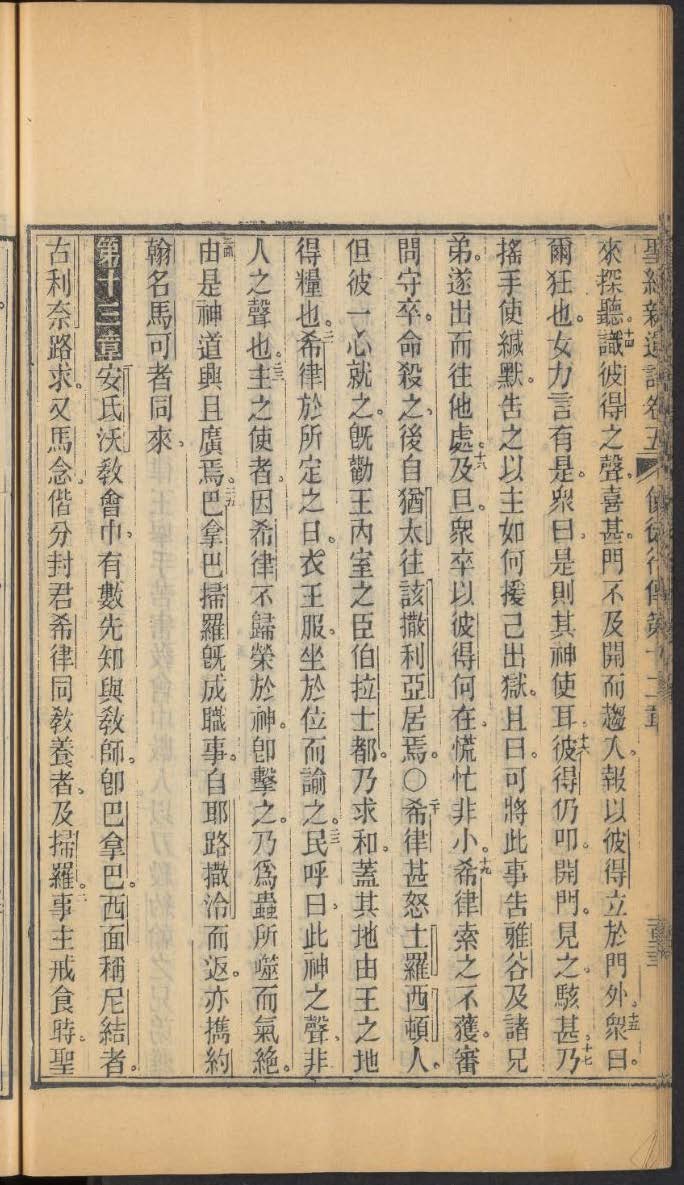 聖經新遺詔卷五 使徒行傳第十二章
來探聽。十四識彼得之聲。喜甚。門不及開而趨入。報以彼得立於門外。十五衆曰。
爾狂也。女力言有是。衆曰。是則其神使耳。十六彼得仍叩。開門。見之。駭甚。十七乃
搖手使緘默。告之以主如何援己出獄。且曰。可將此事告雅谷及諸兄
弟。遂出而往他處。十八及旦。衆卒以彼得何在。慌忙非小。十九希律索之不獲。審
問守卒。命殺之。後自猶太往該撒利亞居焉。○二十希律甚怒士羅西頓人。
但彼一心就之。旣勸王內室之臣伯拉士都。乃求和。蓋其地由王之地
得糧也。希律於所定之日。衣王服。坐於位而諭之。民呼曰。此神之聲。非
人之聲也。主之使者。因希律不歸榮於神。卽擊之。乃爲蟲所噬而氣絶。
由是神道興且廣焉。巴拿巴掃羅旣成職事。自耶路撒冷而返。亦攜約
翰名馬可者同來。
第十三章 安氏沃敎會中。有數先知與敎師。卽巴拿巴。西面稱尼結者。
古利奈路求。又馬念。偕分封君希律同敎養者。及掃羅。二事主戒食時。聖